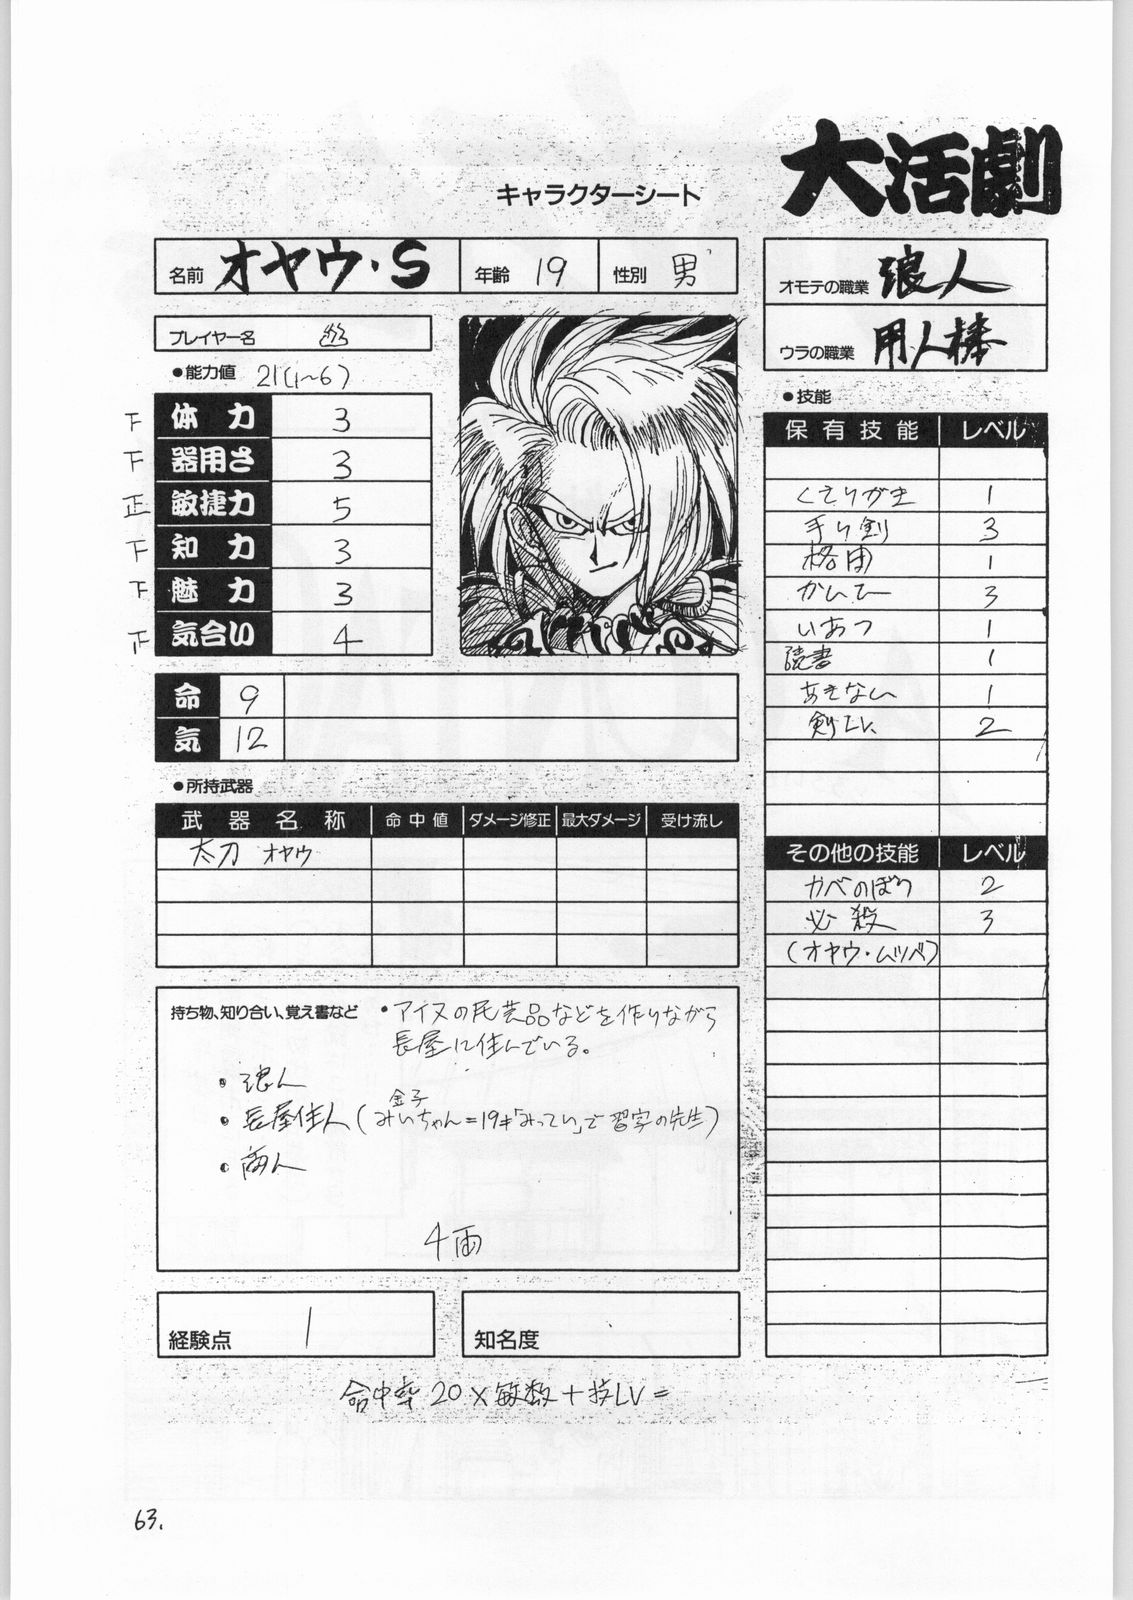 大活劇
キャラクターシート
名前 オヤウ・S 年齢 19 性別 男
オモテの職業 浪人
ウラの職業 用人棒
プレイヤー名
●能力値 21(1〜6)
下 体力 3
下 器用さ 3
正 敏捷力 5
下 知力 3
下 魅力 3
正 気合い 4
命 9
気 12
●所持武器
武器名称 命中値 ダメージ修正 最大ダメージ 受け流し
太刀 オヤウ
持ち物、知り合い、覚え書など
•アイヌの民芸品などを作りながら
長屋に住んでいる。
・浪人
金子
・長屋住人(みいちゃん=19才「みってい」で習字の先生)
・商人
4両
経験点 1
知名度
●技能
保有技能 レベル
くさりがま 1
手り剣 3
格闘 1
かんせー 3
いあつ 1
読書 1
あきない 1
剣 2
その他の技能 レベル
カベのぼり 2
必殺 3
(オヤウ・ムツベ)
命中率 20×敏数+技LV=
63.